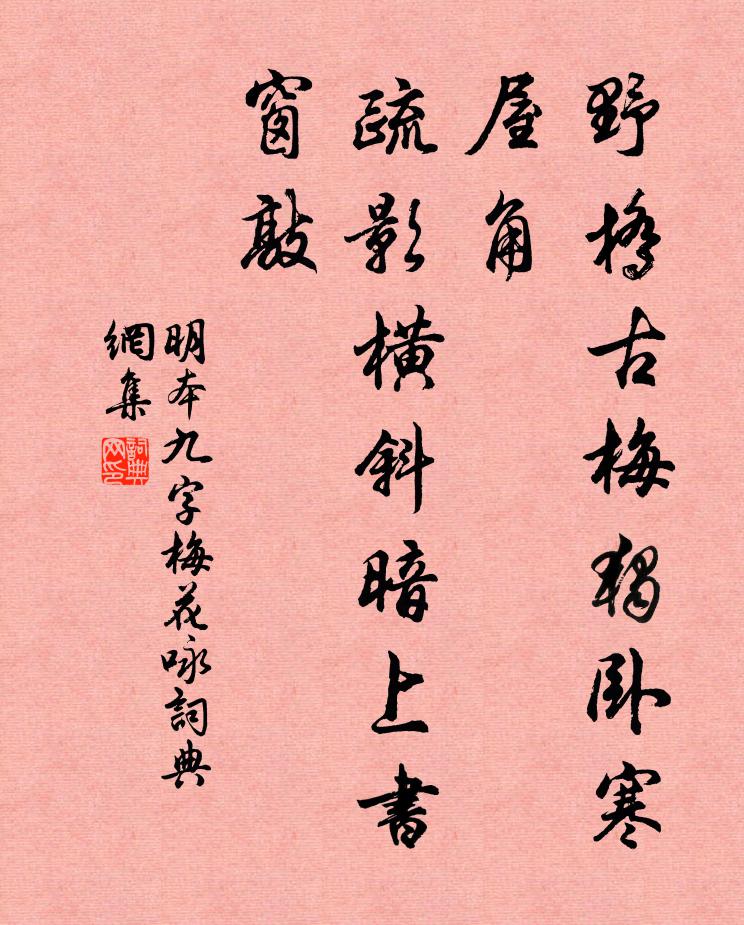 野橋古梅獨卧寒
屋角
疏影橫斜暗上書
窗敲
明本九字梅花咏詞典
網集
詞典
网印